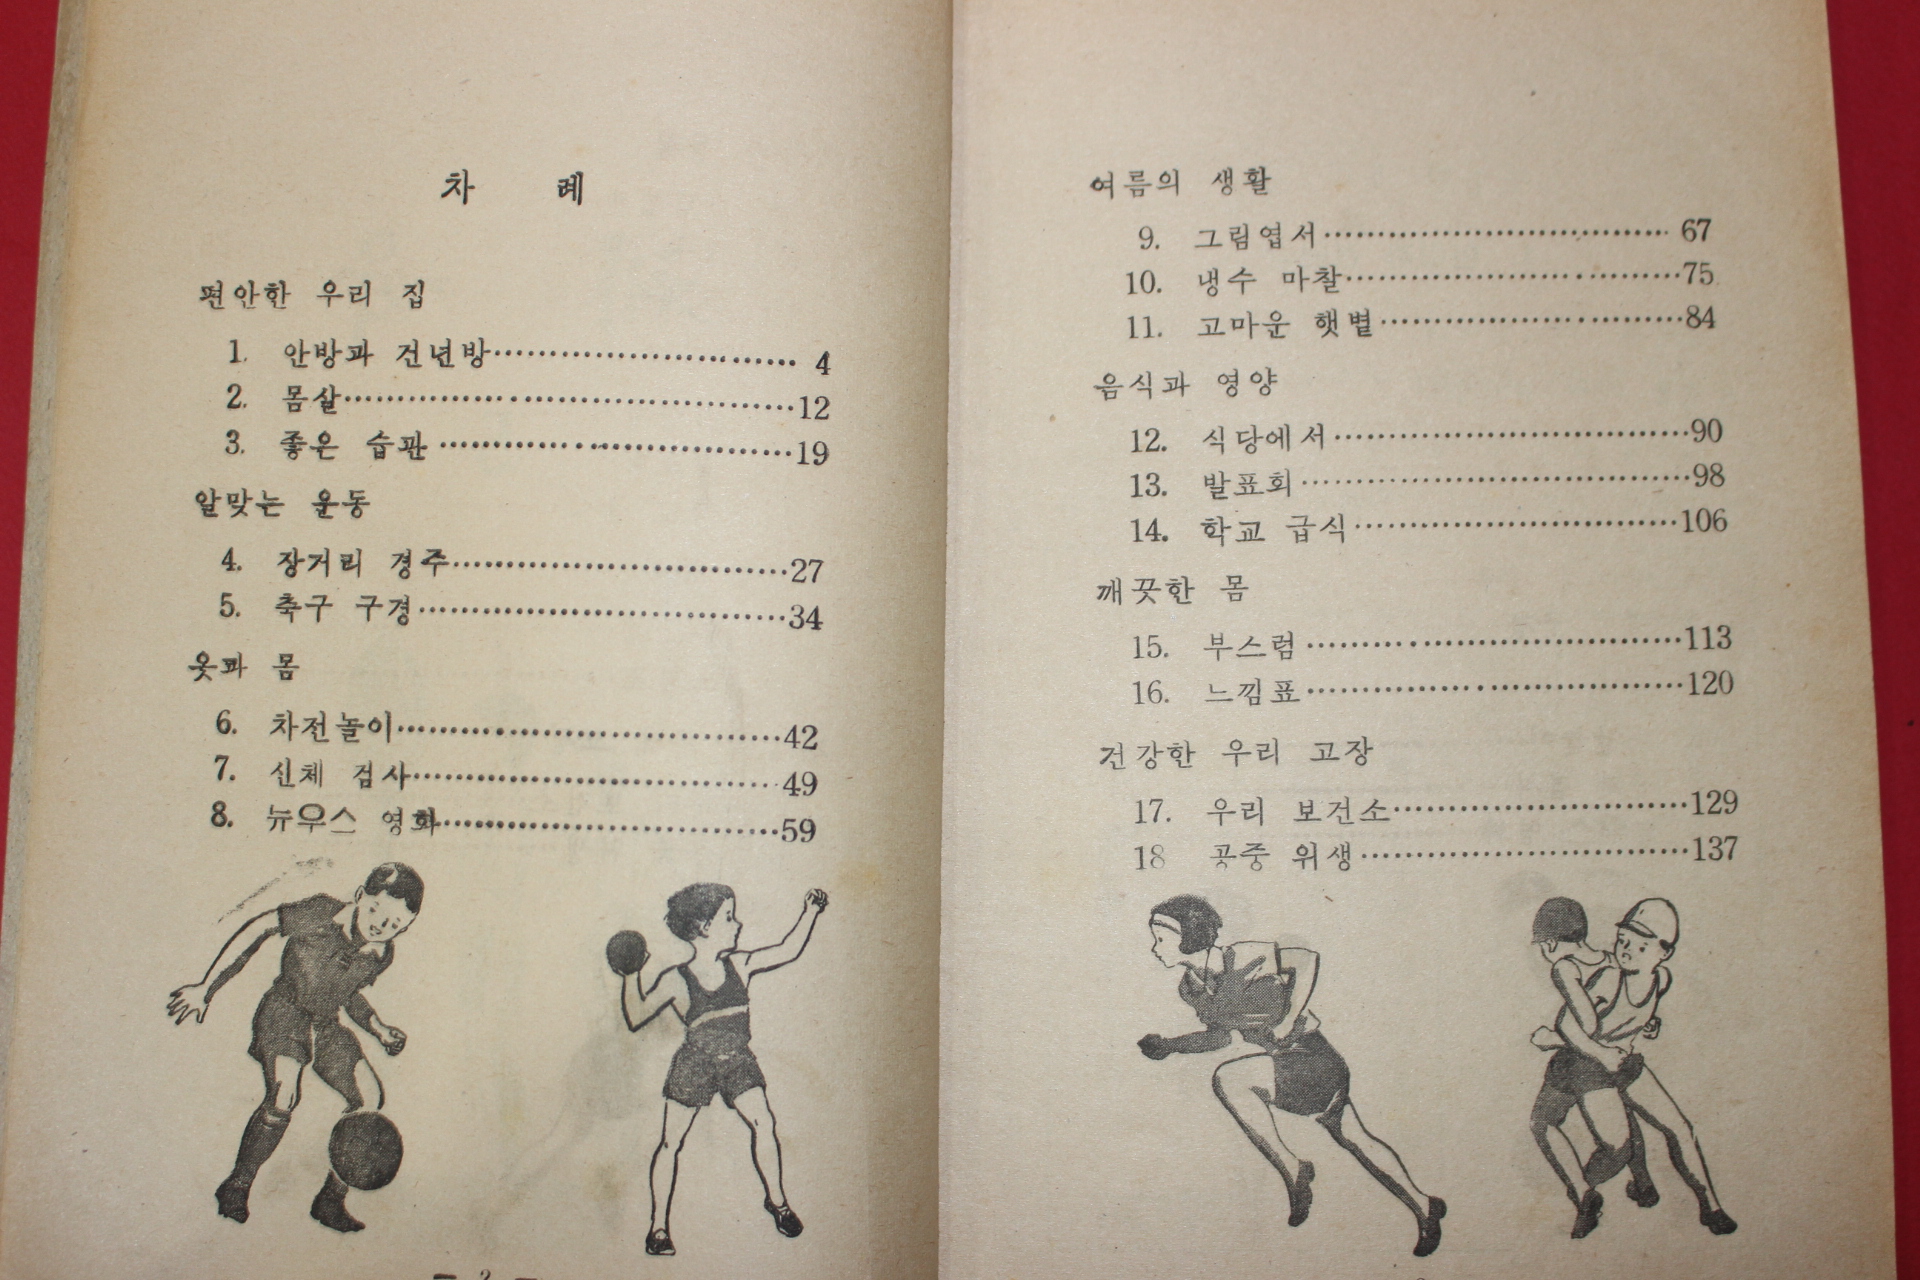 차 례
편안한 우리 집
1. 안방과 건넌방 4
2. 몸살 12
3. 좋은 습관 19
알맞는 운동
4. 장거리 경주 27
5. 축구 구경 34
옷과 몸
6. 차전놀이 42
7. 신체 검사 49
8. 뉴우스 영화 59
— 2 —
여름의 생활
9. 그림엽서 67
10. 냉수 마찰 75
11. 고마운 햇볕 84
음식과 영양
12. 식당에서 90
13. 발표회 98
14. 학교 급식 106
깨끗한 몸
15. 부스럼 113
16. 느낌표 120
건강한 우리 고장
17. 우리 보건소 129
18 공중 위생 137